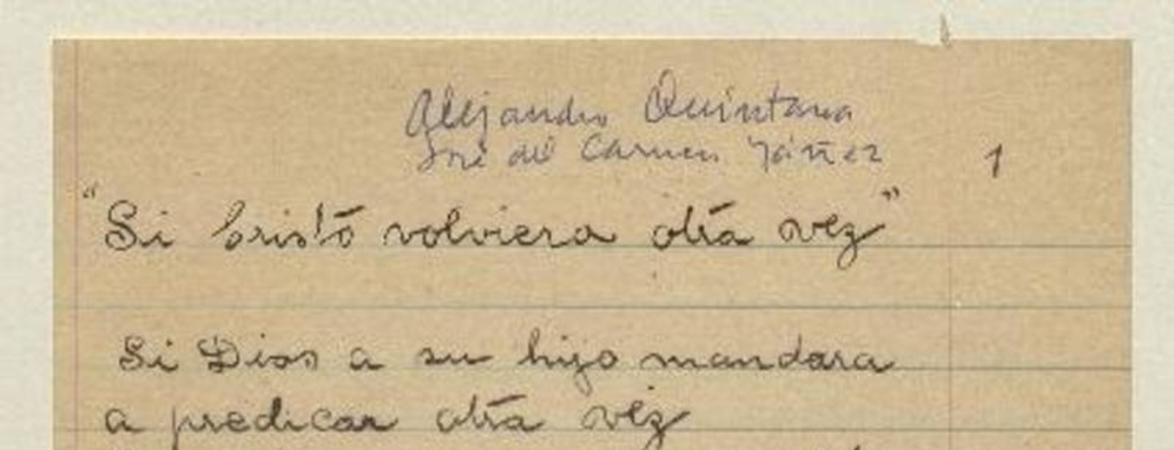 Alejandro Quintana
José del Carmen Yáñez
1
"Si Cristo volviera otra vez"
Si Dios a su hijo mandara
a predicar otra vez